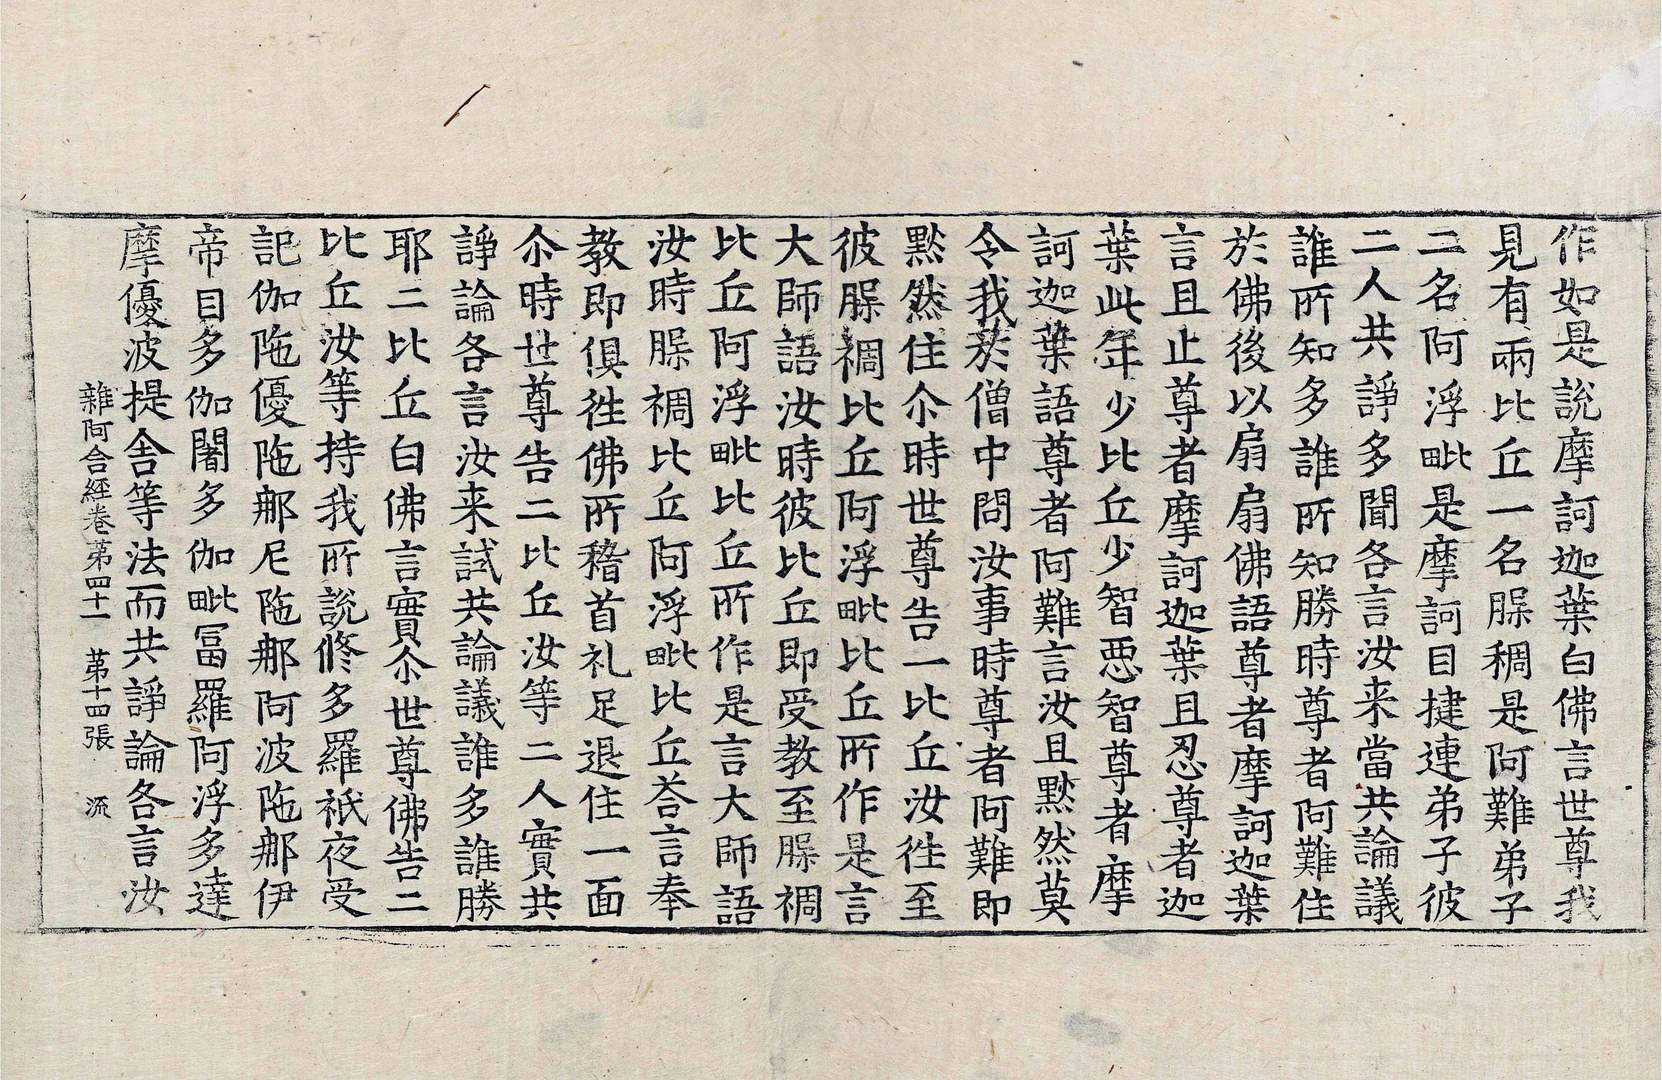 作如是說摩訶迦葉白佛言世尊我
見有兩比丘一名䐗稠是阿難弟子
二名阿浮毗是摩訶目揵連弟子彼
二人共諍多聞各言汝来當共論議
誰所知多誰所知勝時尊者阿難住
於佛後以扇扇佛語尊者摩訶迦葉
言且止尊者摩訶迦葉且忍尊者迦
葉此年少比丘少智惡智尊者摩
訶迦葉語尊者阿難言汝且黙然莫
令我於僧中問汝事時尊者阿難即
黙然住尒時世尊告一比丘汝徃至
彼䐗裯比丘阿浮毗比丘所作是言
大師語汝時彼比丘即受教至䐗裯
比丘阿浮毗比丘所作是言大師語
汝時䐗裯比丘阿浮毗比丘荅言奉
教即俱徃佛所稽首礼足退住一面
尒時世尊告二比丘汝等二人實共
諍論各言汝来試共論議誰多誰勝
耶二比丘白佛言實尒世尊佛告二
比丘汝等持我所說修多羅祇夜受
記伽陁優陁那尼陁那阿波陁那伊
帝目多伽闍多伽毗富羅阿浮多達
摩優波提舍等法而共諍論各言汝
雜阿含經卷第四十一 第十四張 流